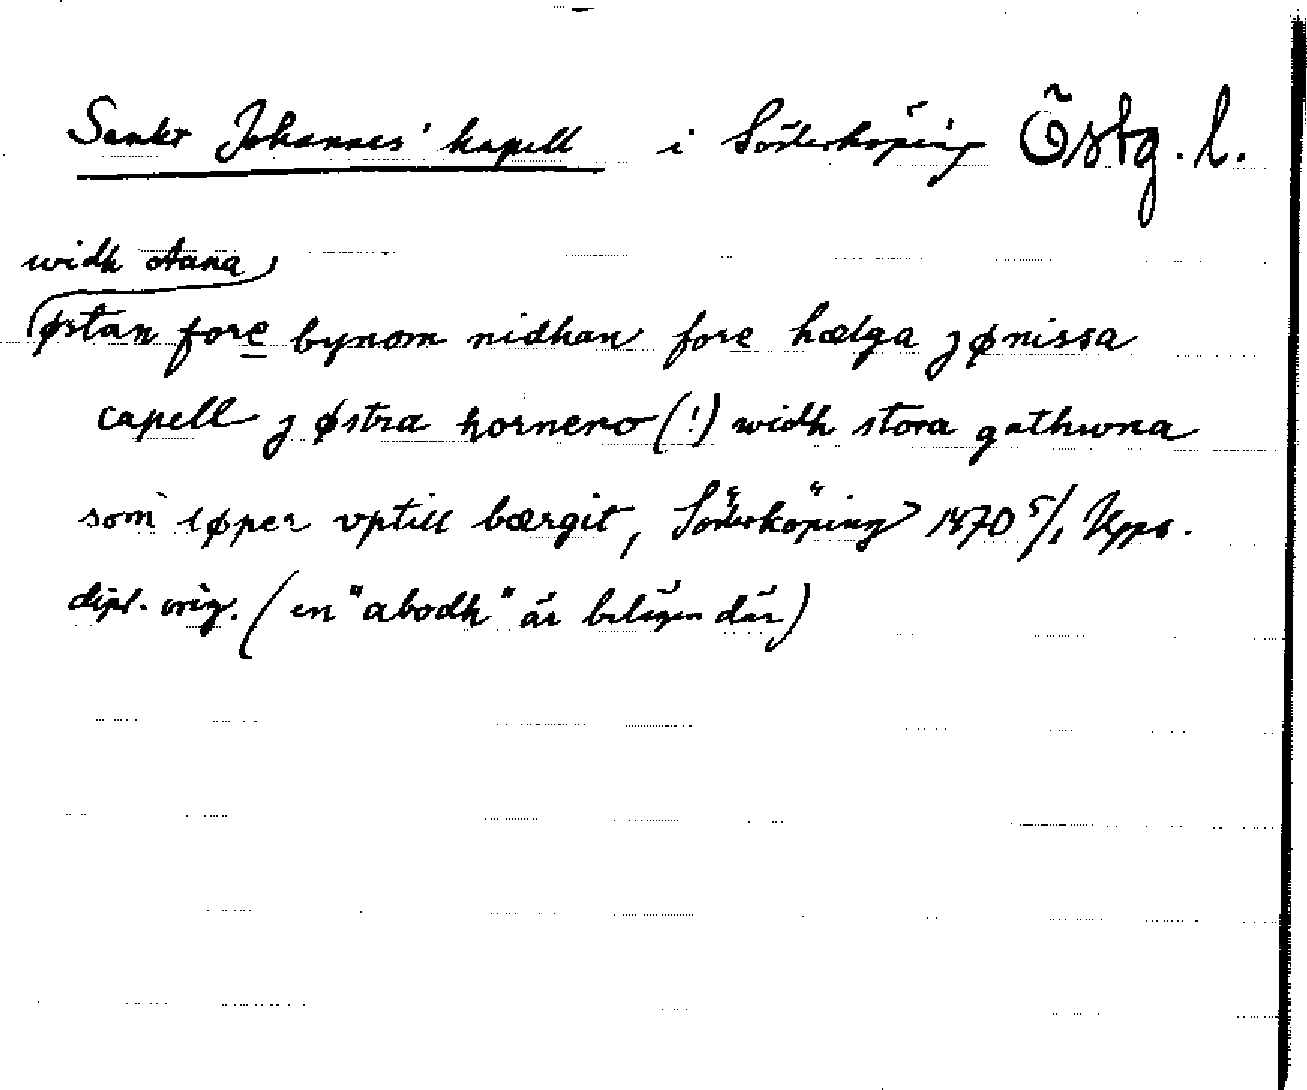 Sankt Johannes' kapell i Söderköping Östg. l.
widh åana
østan fore bynom nidhan fore hælga jønissa
capell j østra horneno (!) widh stora gathwna
som løper vptill bærgit, Söderköping 1470 5/1 Upps.
dipl. orig. (en "abodh" är belägen där)